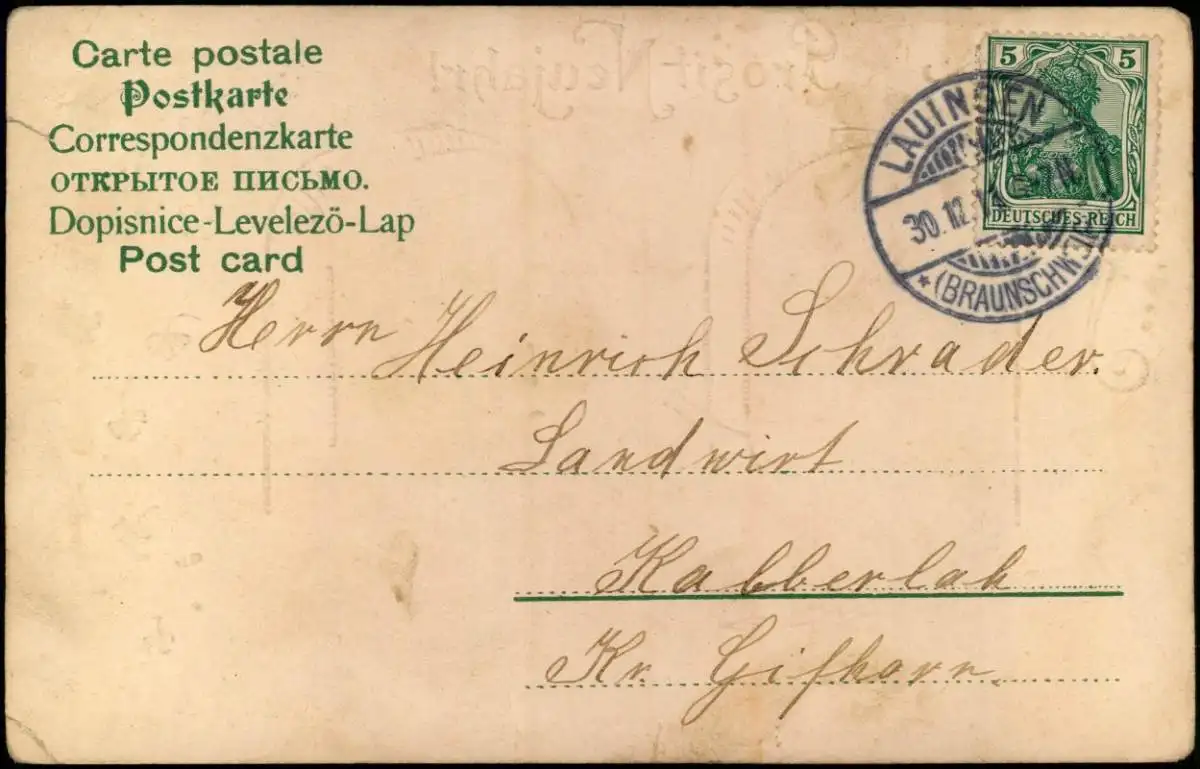 Carte postale
Postkarte
Correspondenzkarte
ОТКРЫТОЕ ПИСЬМО.
Dopisnice-Levelezö-Lap
Post card
Prosit Neujahr!
5 5
DEUTSCHES REICH
LAUINGEN
30.12.
* (BRAUNSCHWEIG)
Herrn Heinrich Schrader.
Landwirt
Kabberlah
Kr. Gifhorn.